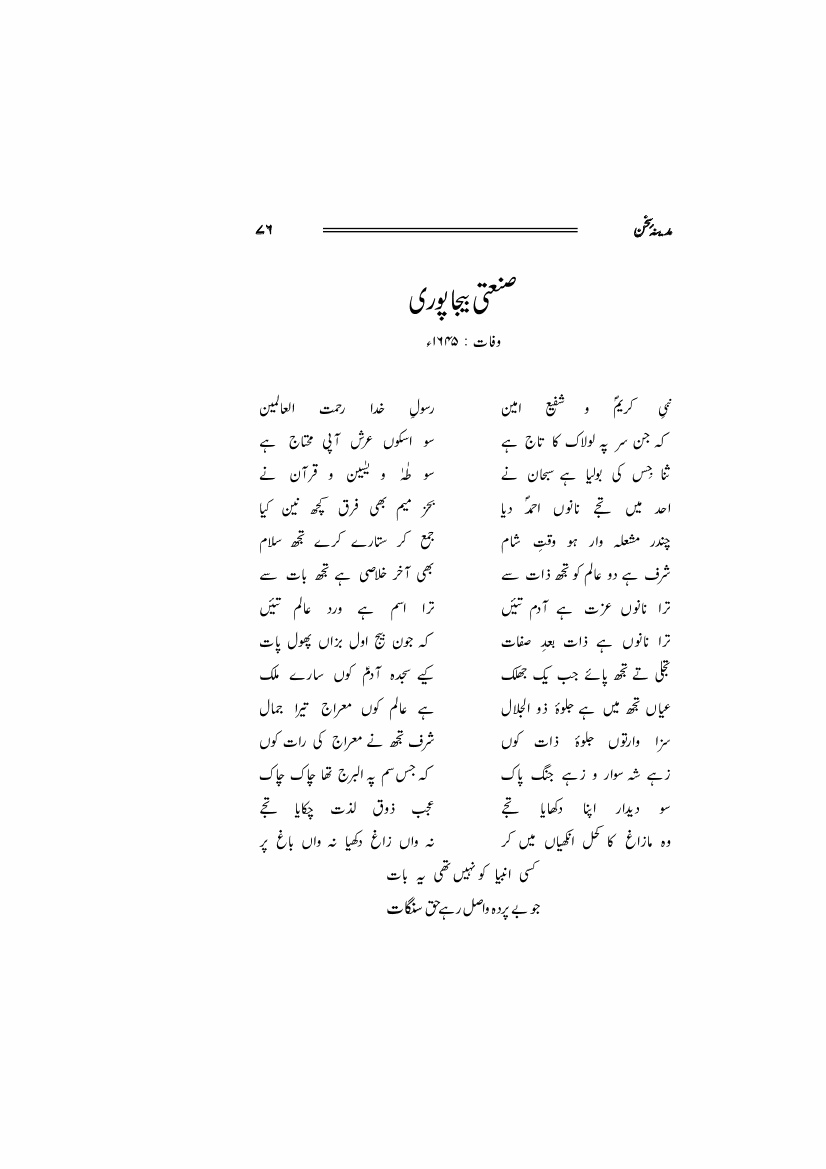 مدینۂ سخن ۷۶
صنعتی بیجاپوری
وفات : ۱۶۴۵ء
نبیِ کریمؐ و شفیع امین رسولِ خدا رحمت العالمین
کہ جن سر پہ لولاک کا تاج ہے سو اسکوں عرش آپی محتاج ہے
ثنا جِس کی بولیا ہے سبحان نے سو طٰہٰ و یٰسین و قرآن نے
احد میں تجے نانوں احمدؐ دیا بجز میم بھی فرق کچھ نین کیا
چندر مشعلہ وار ہو وقتِ شام جمع کر ستارے کرے تجھ سلام
شرف ہے دو عالم کو تجھ ذات سے بھی آخر خلاصی ہے تجھ بات سے
ترا نانوں عزت ہے آدم تئیں ترا اسم ہے ورد عالم تئیں
ترا نانوں ہے ذات بعدِ صفات کہ جون بیج اول بزاں پھول پات
تجلی تے تجھ پائے جب یک جھلک کیے سجدہ آدمؑ کوں سارے ملک
عیاں تجھ میں ہے جلوۂ ذو الجلال ہے عالم کوں معراج تیرا جمال
سزا وارتوں جلوۂ ذات کوں شرف تجھ نے معراج کی رات کوں
زہے شہ سوار و زہے جنگ پاک کہ جس سم پہ البرج تھا چاک چاک
سو دیدار اپنا دکھایا تجے عجب ذوق لذت چکایا تجے
وہ مازاغ کا کحل انکھیاں میں کر نہ واں زاغ دکھیا نہ واں باغ پر
کسی انبیا کو نہیں تھی یہ بات
جو بے پردہ واصل رہے حق سنگات